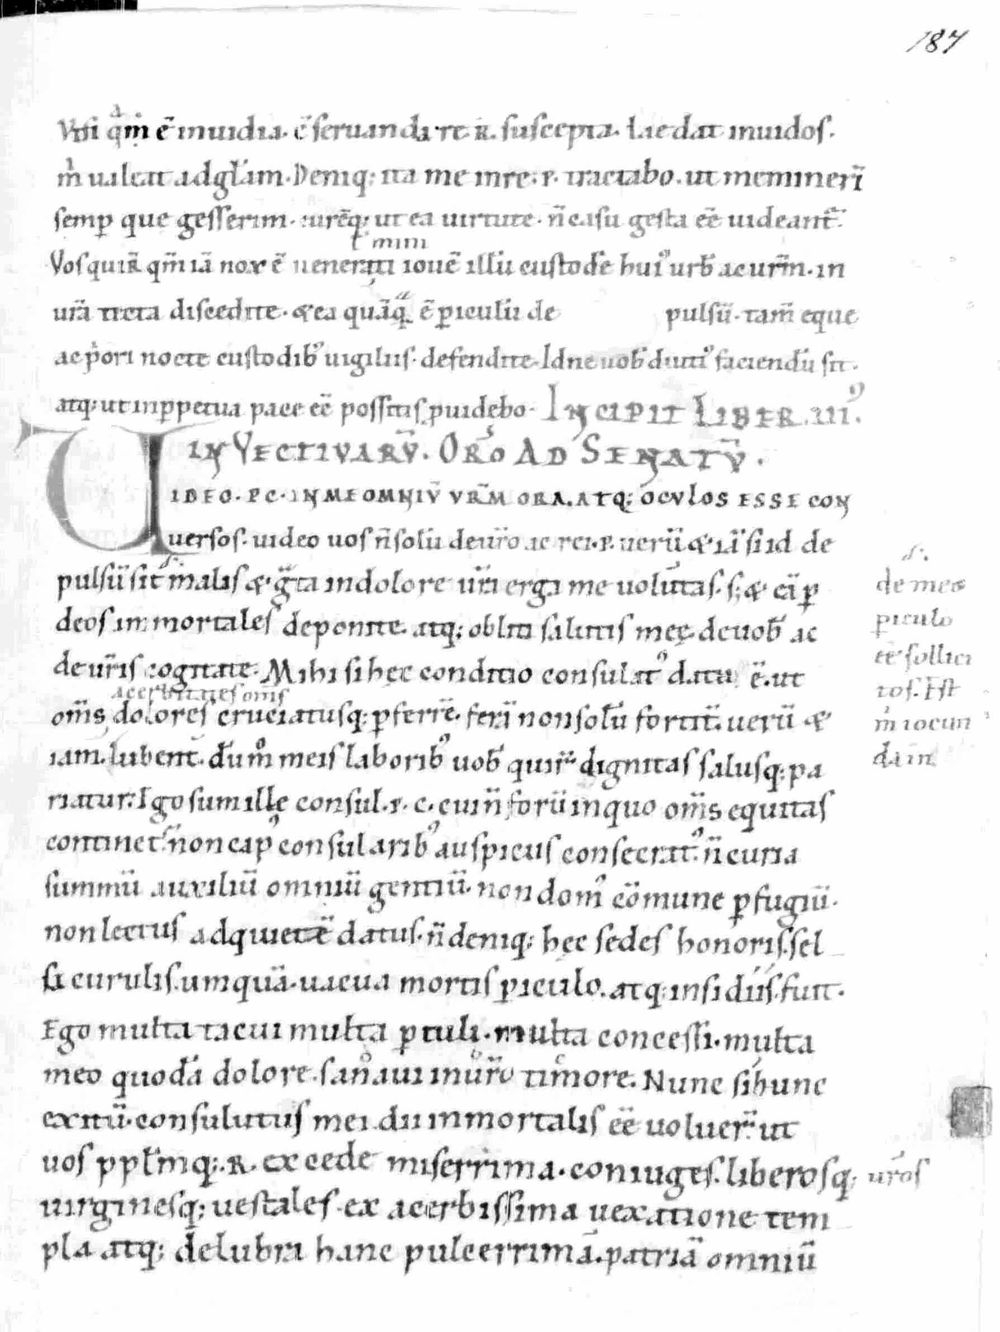 187
Vti q̄m̄ ē inuidia. ē seruanda re .R. suscepta. Ledat inuidos.
m̄ ualeat adgl̄iam. Deniq; ita me inre .P. tractabo. ut meminerī
semp que gesserim. curēq; ut ea uirtute. n̄ casu gesta eē uideant̄.
mini
Vos quiR̄ qm̄ iā nox ē uenerati ioūe illū custodē hui᾿ urb̄ ac urm̄. in
urā tecta discedite. & ea quāq̄ ē piculū de pulsū. tam̄ eque
ac p̄ori nocte custodib᾿ uigiliis. defendite. Id ne uob̄ diuti᾿ faciendū sit.
atq; ut inppetua pace eē possitis. puidebo. INCIPIT LIBER .III᾿.
INVECTIVARV̄. ORO AD SENATV̄.
VIDEO. PC. INMEOMNIV̄ VRM̄ ORA. ATQ; OCVLOS ESSE CON
uersos. uideo uos n̄ solū deur̄o ac rei .P. uerū & iā si id de
pulsū sit m̄alis & gr̄ta indolore ur̄a erga me uolūtas. s; & eā p
deos inmortales deponite. atq; obliti salutis meę. deuob̄ ac
de ur̄is cogitate. Mihi si hec conditio consulat᾿ data ē. ut
acerbitates om̄s
om̄s dolores cruciatusq; pferrē. ferā non solū fortit̄ uerū &
iam. lubent̄. dūm̊ meis laborib᾿ uob̄ quir̄ dignitas salusq; pa
riatur. Ego sum ille consul .P. C. cui n̄ forū inquo om̄s equitas
continet᾿. non cāp᾿ consularib᾿ auspiciis consecrat᾿. n̄ curia
summū auxiliū omniū gentiū. non dom᾿ cōmune pfugiū.
non lectus adquietē datus. n̄ deniq; hec sedes honoris. sel
la curulis. umquā. uacua mortis piculo. atq; insidiis. fuit.
Ego multa tacui multa ptuli. multa concessi. multa
meo quodā dolore. sanaui inur̄o timore. Nunc si hunc
exitū. consulatus mei. dii inmortalis eē uoluer̄ ut
uos pplm̄q; .R. ex cede miserrima. coniuges. liberosq; ur̄os
uirginesq; uestales. ex acerbissima uexatione tem
pla atq; delubra hanc pulcerrimā. patriā omniū
de meo
piculo
eē sollici
tos. Est
m̄ iocun
da in